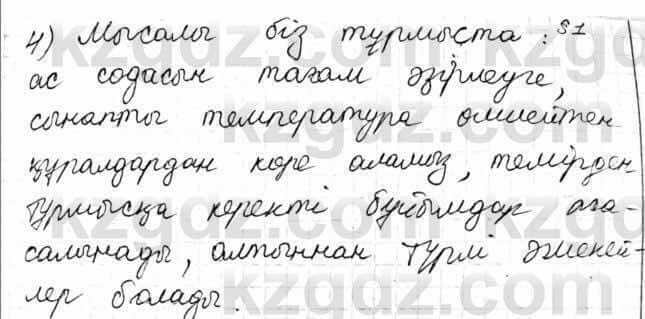 4) Мысалы біз тұрмыста : §1
ас содасын тағам әзірлеуге,
сынапты температура өлшейтен
құралдардан көре аламыз, темірден
тұрмысқа керекті бұйымдар жа-
салынады, алтыннан түрлі әшекей-
лер болады.
kzgdz.com